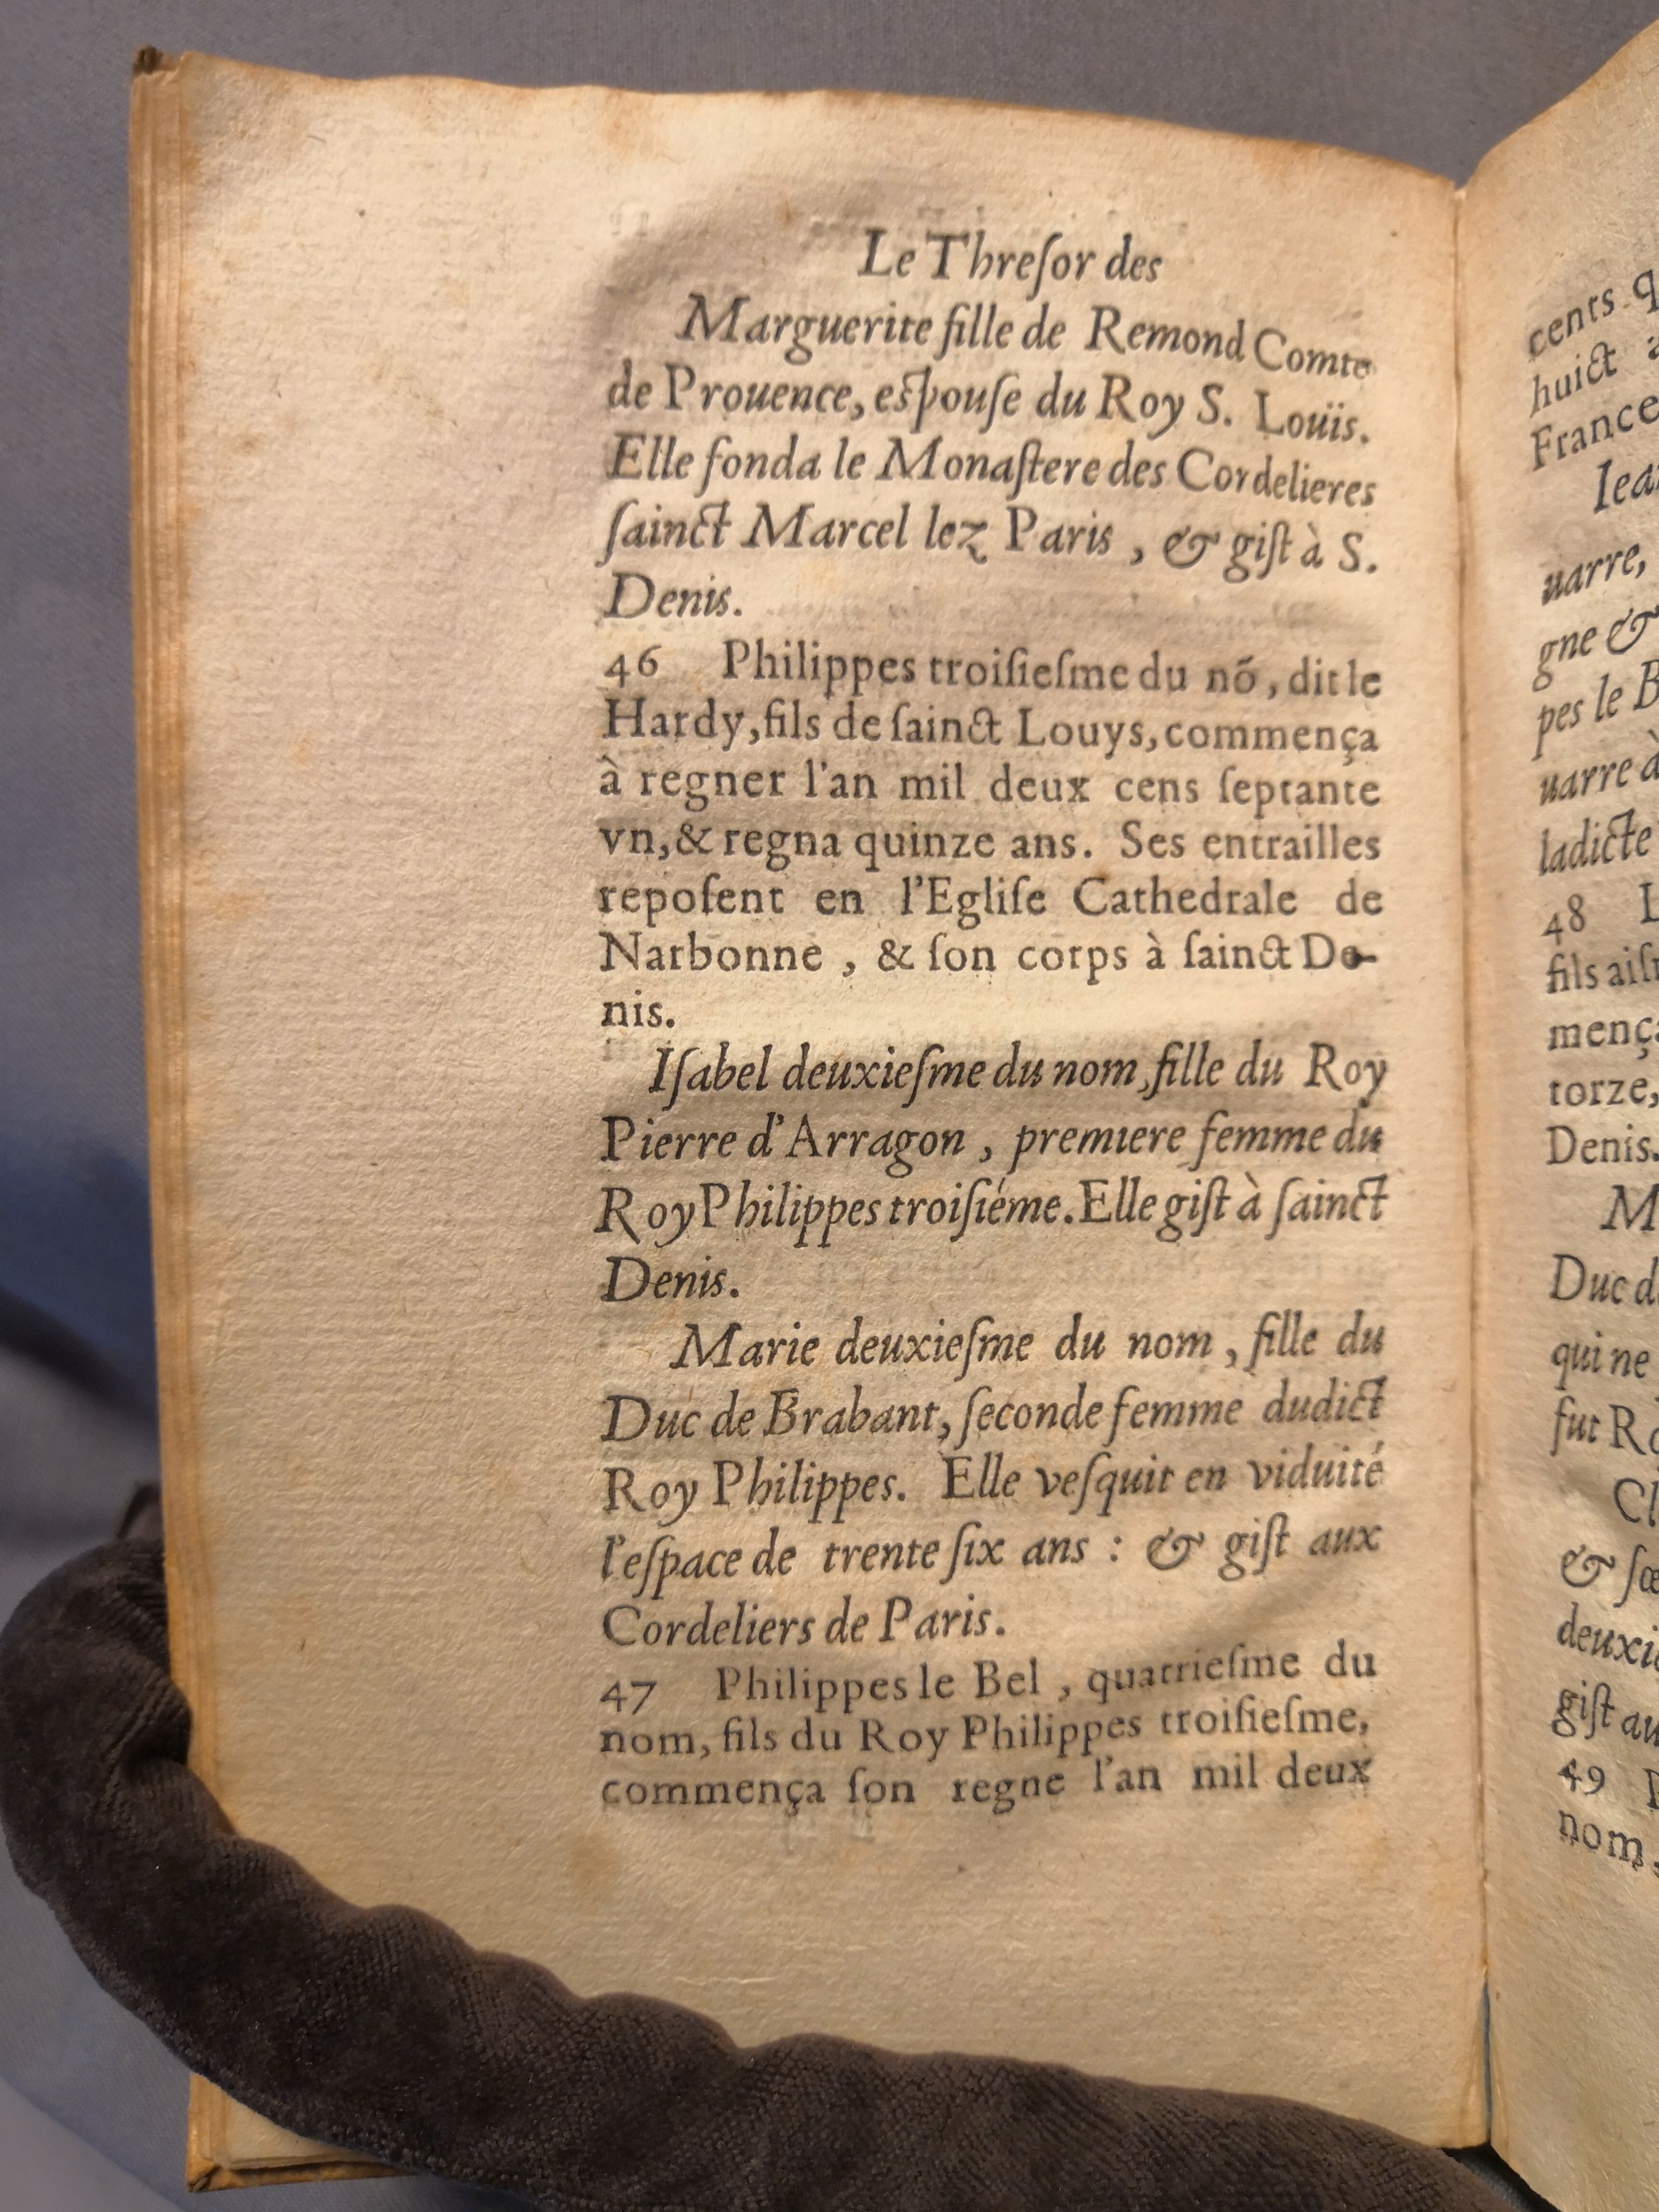 Le Threſor des
Marguerite fille de Remond Comte
de Prouence, eſpouſe du Roy S. Louïs.
Elle fonda le Monaſtere des Cordelieres
ſainct Marcel lez Paris, & giſt à S.
Denis.
46 Philippes troiſieſme du nõ, dit le
Hardy, fils de ſainct Louys, commença
à regner l'an mil deux cens ſeptante
vn, & regna quinze ans. Ses entrailles
repoſent en l'Egliſe Cathedrale de
Narbonne, & ſon corps à ſainct De-
nis.
Iſabel deuxieſme du nom, fille du Roy
Pierre d'Arragon, premiere femme du
Roy Philippes troiſiéme. Elle giſt à ſainct
Denis.
Marie deuxieſme du nom, fille du
Duc de Brabant, ſeconde femme dudict
Roy Philippes. Elle veſquit en viduité
l'eſpace de trente ſix ans : & giſt aux
Cordeliers de Paris.
47 Philippes le Bel, quatrieſme du
nom, fils du Roy Philippes troiſieſme,
commença ſon regne l'an mil deux
cents
huict
France
uarre,
gne &
pes le B
uarre à
ladicte
48 L
fils aiſ
mença
torze,
Denis.
M
Duc d
qui ne
fut Ro
Cl
& ſœ
deuxie
giſt au
49
nom,